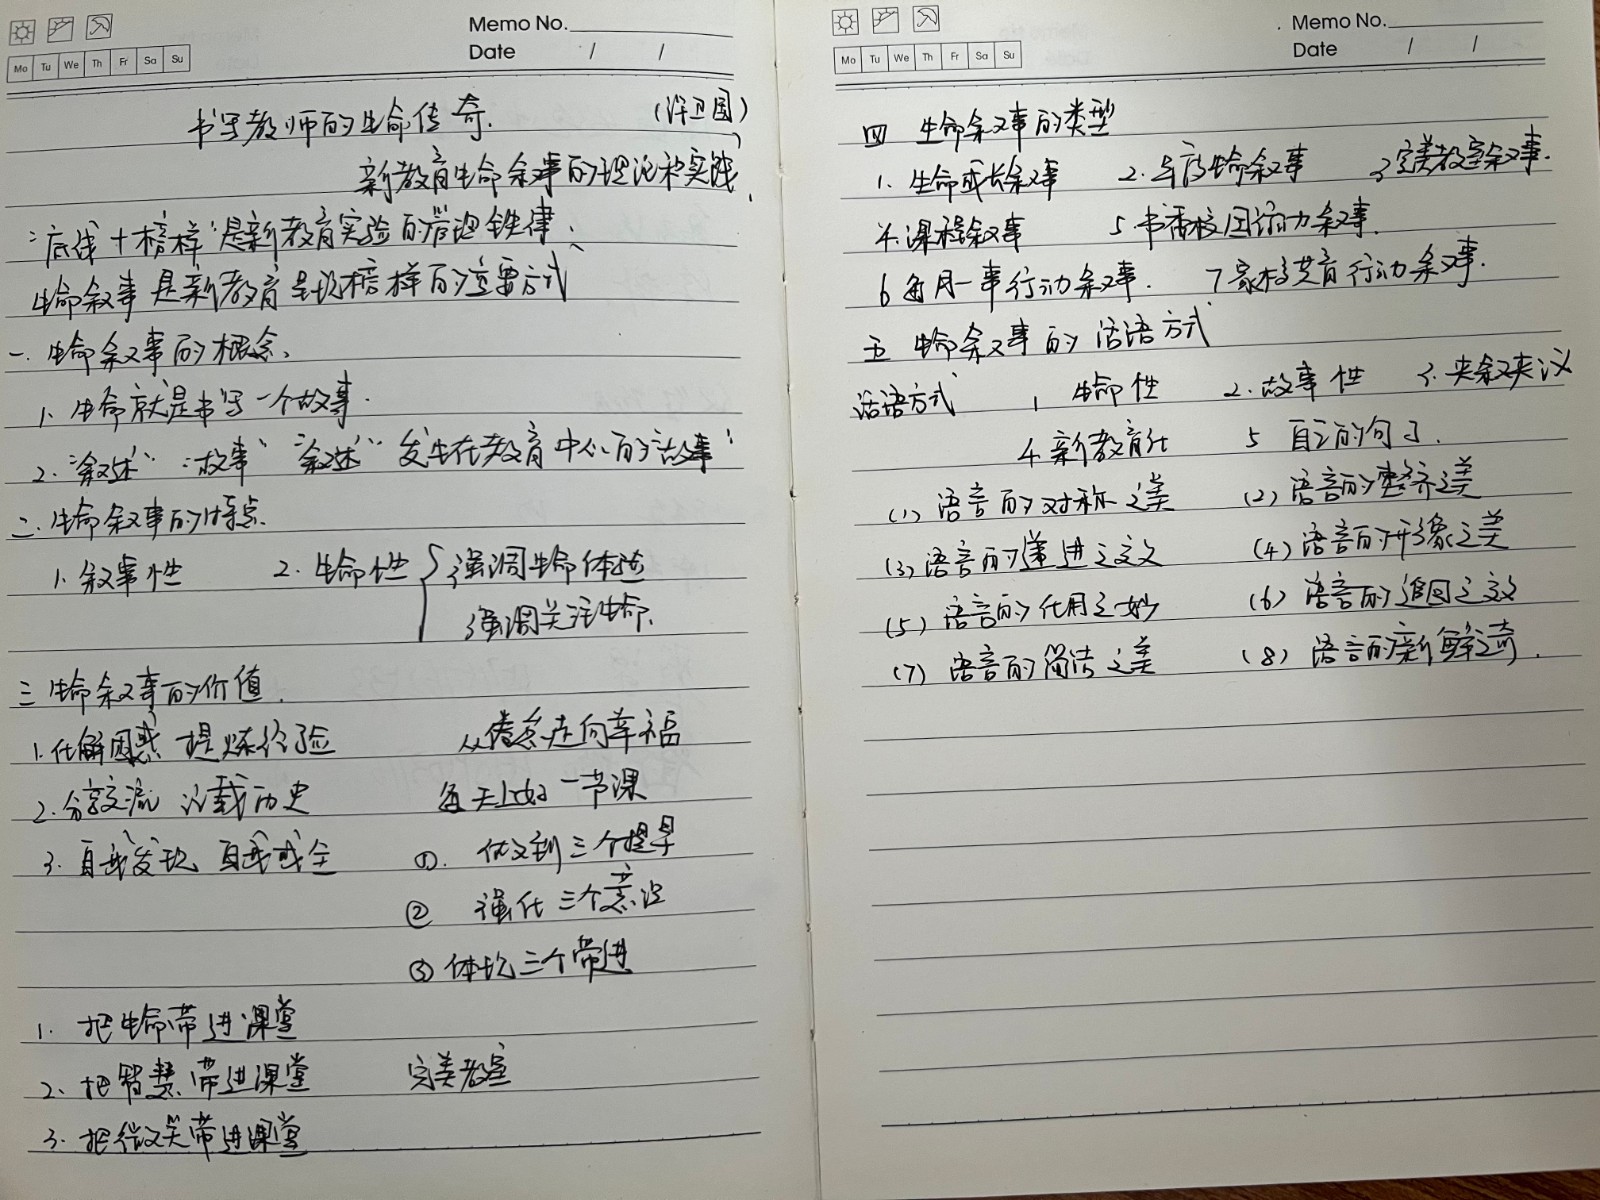 Memo No.
Date / /
Mo Tu We Th Fr Sa Su
书写教师的生命传奇. (许卫国)
新教育生命叙事的理论和实践.
“底线+榜样”是新教育实验的管理铁律、
生命叙事是新教育呈现榜样的重要方式
一. 生命叙事的概念、
1. 生命就是书写一个故事.
2. “叙述”“故事” “叙述”发生在教育中心的“故事”
二. 生命叙事的特点.
1. 叙事性 2. 生命性 { 强调生命体验
强调关注生命.
三 生命叙事的价值.
1. 化解困惑 提炼经验 从倦怠走向幸福
2. 分享交流 记载历史 每天上好一节课
3. 自我发现 自我成全 ①. 做到三个提早
② 强化三个意识
③ 体现三个带进
1. 把生命带进课堂
2. 把智慧带进课堂 完美教室
3. 把微笑带进课堂
Memo No.
Date / /
Mo Tu We Th Fr Sa Su
四 生命叙事的类型
1. 生命成长叙事 2. 生命叙事 3 完美教室叙事.
4. 课程叙事 5. 书香校园活动叙事.
6 每月一事行动叙事. 7 家校共育行动叙事.
五 生命叙事的话语方式
话语方式 1 生命性 2. 故事性 3. 夹叙夹议
4. 新教育化 5 自己的句子.
(1) 语言的对称之美 (2) 语言的整齐之美
(3) 语言的递进之效 (4) 语言的形象之美
(5) 语言的化用之妙 (6) 语言的追问之效
(7) 语言的简洁之美 (8) 语言的新鲜之奇.